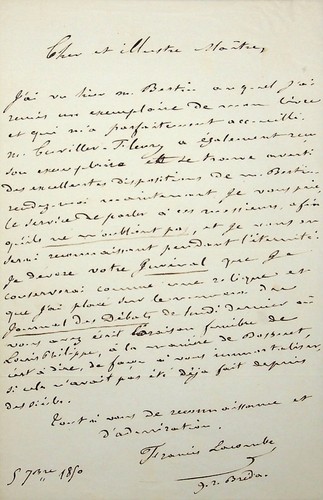 Cher et illustre Maître,
J'ai vu hier m. Bertin auquel j'ai
remis un exemplaire de mon livre
et qui m'a parfaitement accueilli.
m. Cuvillier-Fleury a également reçu
son exemplaire et se trouve averti
des excellentes dispositions de m. Bertin.
rendez-moi maintenant je vous prie
le service de parler à ces messieurs, afin
qu'ils ne m'oublient pas, et je vous en
serai reconnaissant pendant l'éternité.
Je dévore votre Juvénal que je
conserverai comme une relique et
que j'ai placé sur le numéro du
Journal des Débats de lundi dernier où
vous avez écrit l'oraison funèbre de
Louis Philippe, à la manière de Bossuet,
c'est à dire, de façon à vous immortaliser,
si cela n'avait pas été déjà fait depuis
Tout à vous de reconnaissance et
d'admiration.
Francis Lacombe
5 7bre 1850